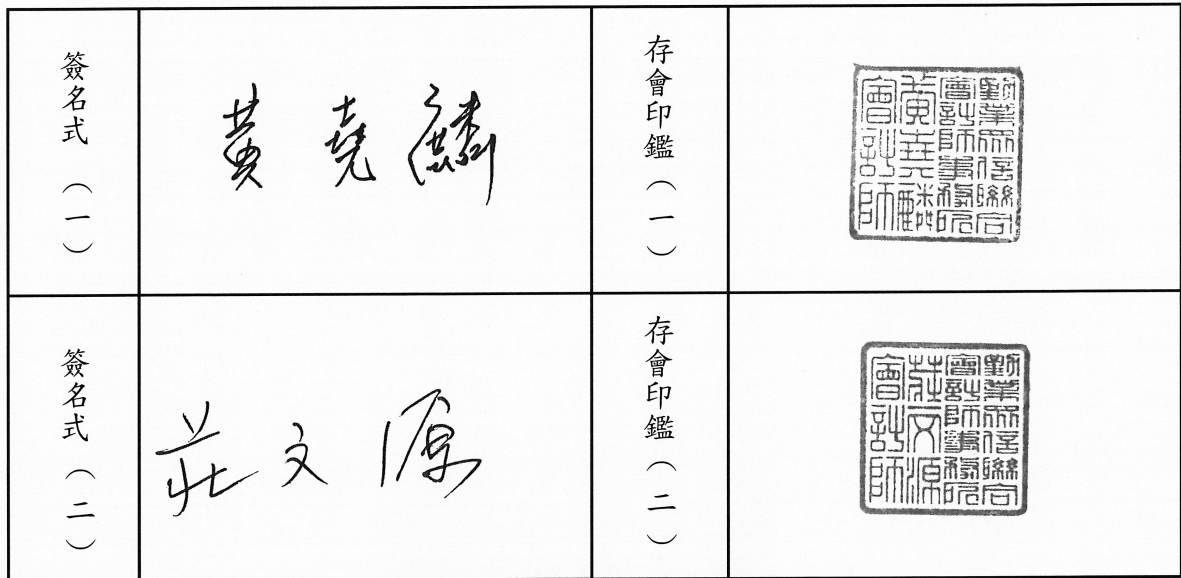 簽名式（一）
黃堯麟
存會印鑑（一）
勤業眾信聯合
會計師事務所
黃堯麟
會計師
簽名式（二）
莊文源
存會印鑑（二）
勤業眾信聯合
會計師事務所
莊文源
會計師